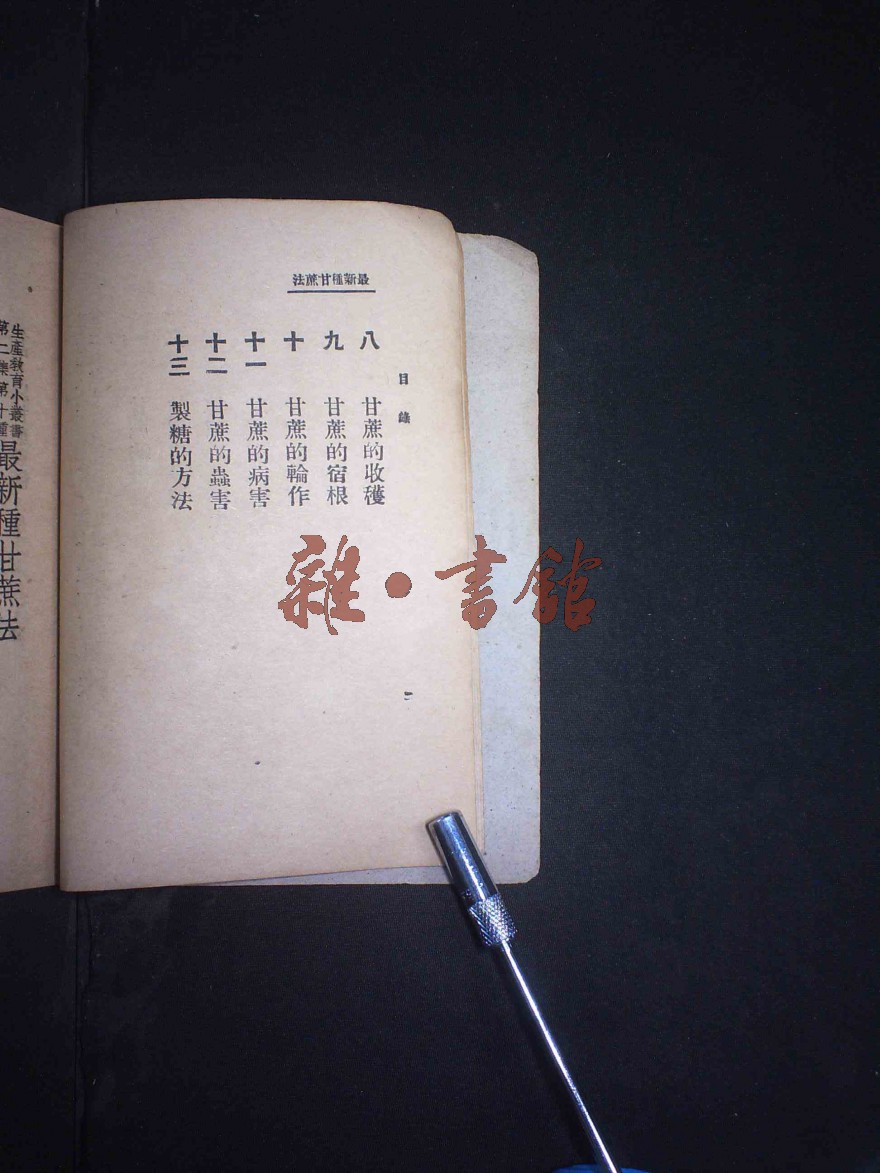 最新種甘蔗法
目錄
八 甘蔗的收穫
九 甘蔗的宿根
十 甘蔗的輪作
十一 甘蔗的病害
十二 甘蔗的蟲害
十三 製糖的方法
二
生產教育小叢書
第二集第十種
最新種甘蔗法
雜·書館